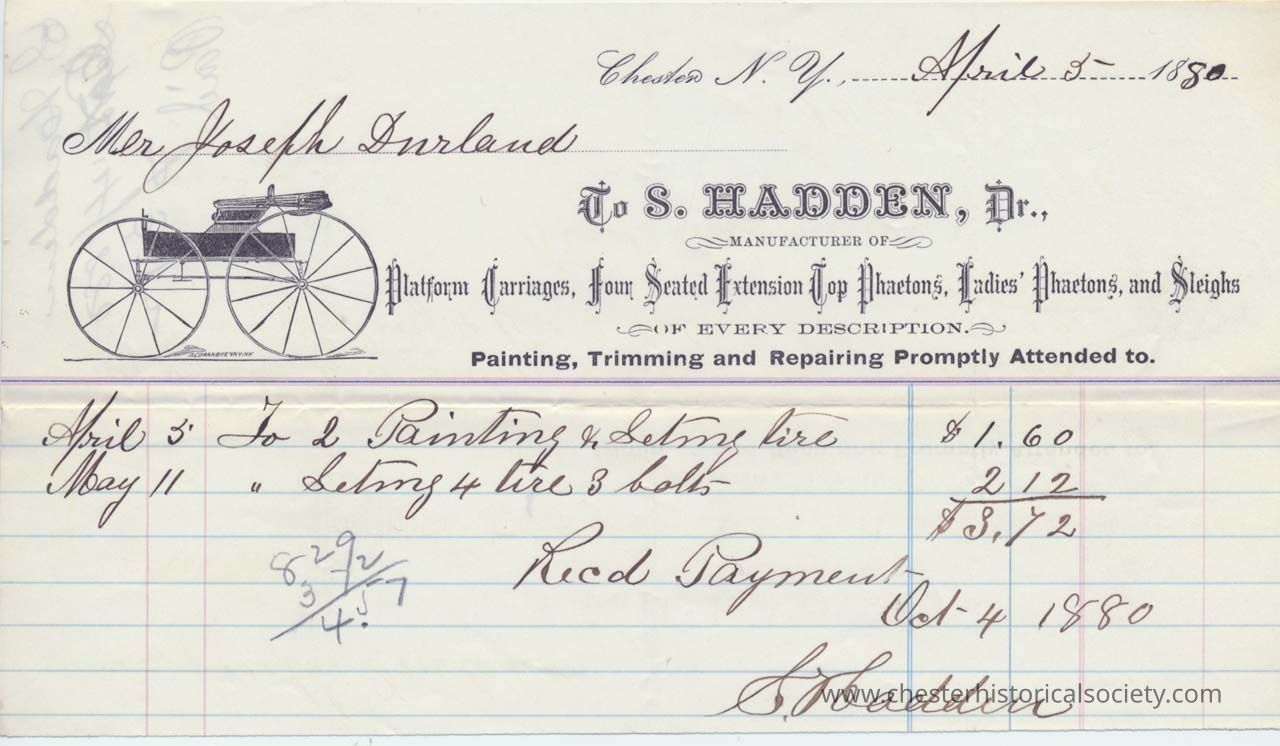 Chester N. Y., April 5 1880
Mer Joseph Durland
To S. HADDEN, Dr.,
MANUFACTURER OF
Platform Carriages, Four Seated Extension Top Phaetons, Ladies' Phaetons, and Sleighs
OF EVERY DESCRIPTION.
Painting, Trimming and Repairing Promptly Attended to.
April 5 To 2 Painting & Seting tire $1.60
May 11 " Seting 4 tire 3 bolts 2 12
$3.72
Recd Payment
Oct 4 1880
S. Hadden
www.chesterhistoricalsociety.com